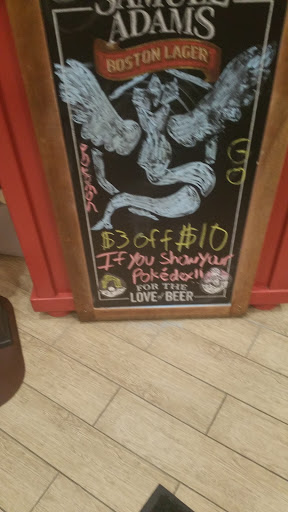 SAMUEL
ADAMS
BOSTON LAGER
Pokemon
GO
$3 off $10
If You Show Your
Pokédex!!
FOR THE
LOVE of BEER